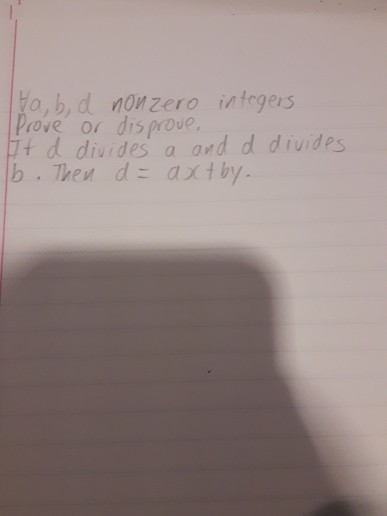 ∀a, b, d nonzero integers
Prove or disprove.
If d divides a and d divides
b. Then d = ax + by.